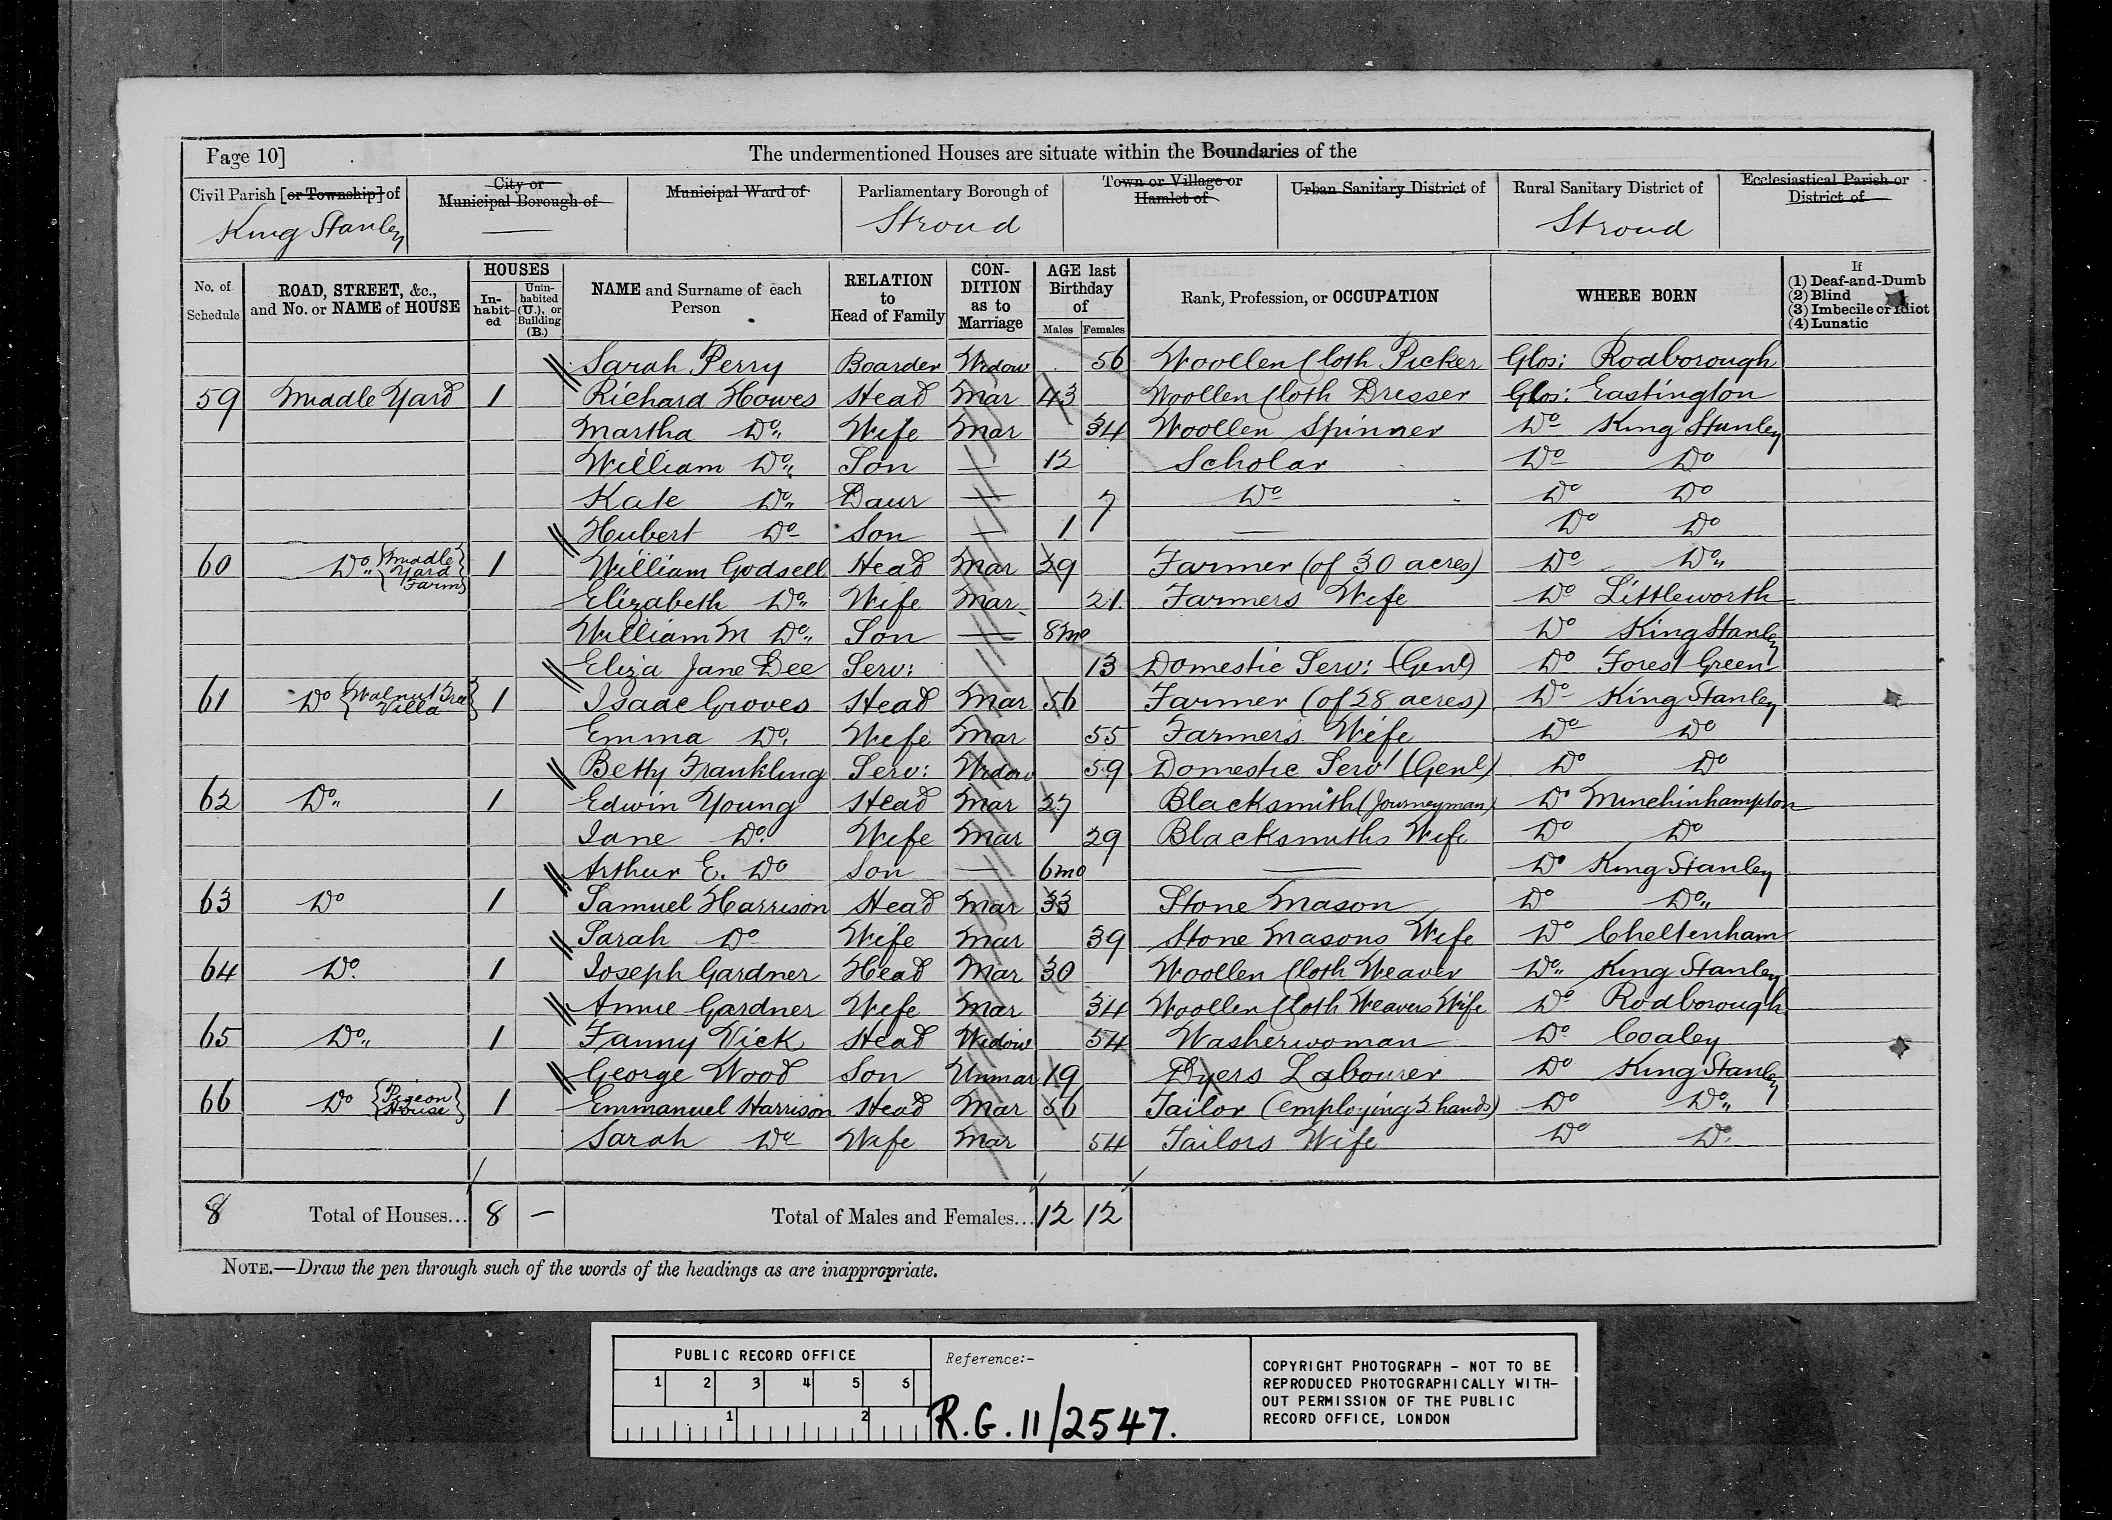 Page 10]
The undermentioned Houses are situate within the Boundaries of the
Civil Parish [or Township] of
King Stanley
City or
Municipal Borough of
—
Municipal Ward of
Parliamentary Borough of
Stroud
Town or Village or
Hamlet of
Urban Sanitary District of
Rural Sanitary District of
Stroud
Ecclesiastical Parish or
District of
No. of Schedule
ROAD, STREET, &c., and No. or NAME of HOUSE
HOUSES
In-habit-ed
Unin-habited (U.), or Building (B.)
NAME and Surname of each Person
RELATION to Head of Family
CON-DITION as to Marriage
AGE last Birthday of
Males Females
Rank, Profession, or OCCUPATION
WHERE BORN
If
(1) Deaf-and-Dumb
(2) Blind
(3) Imbecile or Idiot
(4) Lunatic
Sarah Perry Boarder Widow 56 Woollen Cloth Picker Glos: Rodborough
59 Middle Yard 1 Richard Howes Head Mar 43 Woollen Cloth Dresser Glos: Eastington
Martha Do Wife Mar 34 Woollen Spinner Do King Stanley
William Do Son — 12 Scholar Do Do
Kate Do Daur — 7 Do Do Do
Hubert Do Son — 1 — Do Do
60 Do {Middle Yard Farm} 1 William Godsell Head Mar 29 Farmer (of 30 acres) Do Do
Elizabeth Do Wife Mar 21 Farmers Wife Do Littleworth
William M Do Son — 8mo Do King Stanley
Eliza Jane Dee Serv: 13 Domestic Serv: (Genl) Do Forest Green
61 Do {Walnut Tree Villa} 1 Isaac Groves Head Mar 56 Farmer (of 28 acres) Do King Stanley
Emma Do Wife Mar 55 Farmers Wife Do Do
Betty Frankling Serv: Widow 59 Domestic Serv (Genl) Do Do
62 Do 1 Edwin Young Head Mar 27 Blacksmith (Journeyman) Do Minchinhampton
Jane Do Wife Mar 29 Blacksmiths Wife Do Do
Arthur E. Do Son — 6mo — Do King Stanley
63 Do 1 Samuel Harrison Head Mar 33 Stone Mason Do Do
Sarah Do Wife Mar 39 Stone Masons Wife Do Cheltenham
64 Do 1 Joseph Gardner Head Mar 30 Woollen Cloth Weaver Do King Stanley
Annie Gardner Wife Mar 34 Woollen Cloth Weavers Wife Do Rodborough
65 Do 1 Fanny Vick Head Widow 54 Washerwoman Do Coaley
George Wood Son Unmar 19 Dyers Labourer Do King Stanley
66 Do {Pigeon House} 1 Emmanuel Harrison Head Mar 56 Tailor (employing 2 hands) Do Do
Sarah Do Wife Mar 54 Tailors Wife Do Do
8 Total of Houses... 8 — Total of Males and Females... 12 12
NOTE.—Draw the pen through such of the words of the headings as are inappropriate.
PUBLIC RECORD OFFICE
1 2 3 4 5 6
1 2
Reference:-
R.G. 11/2547.
COPYRIGHT PHOTOGRAPH - NOT TO BE
REPRODUCED PHOTOGRAPHICALLY WITH-
OUT PERMISSION OF THE PUBLIC
RECORD OFFICE, LONDON